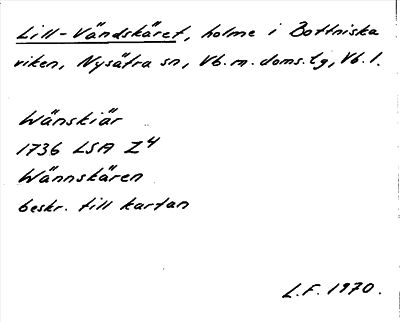 Lill-Vändskäret, holme i Bottniska
viken, Nysätra sn, Vb.m.doms.lg, Vb.l.
Wänskiär
1736 LSA Z4
Wännskären
beskr. till kartan
L.F. 1970.